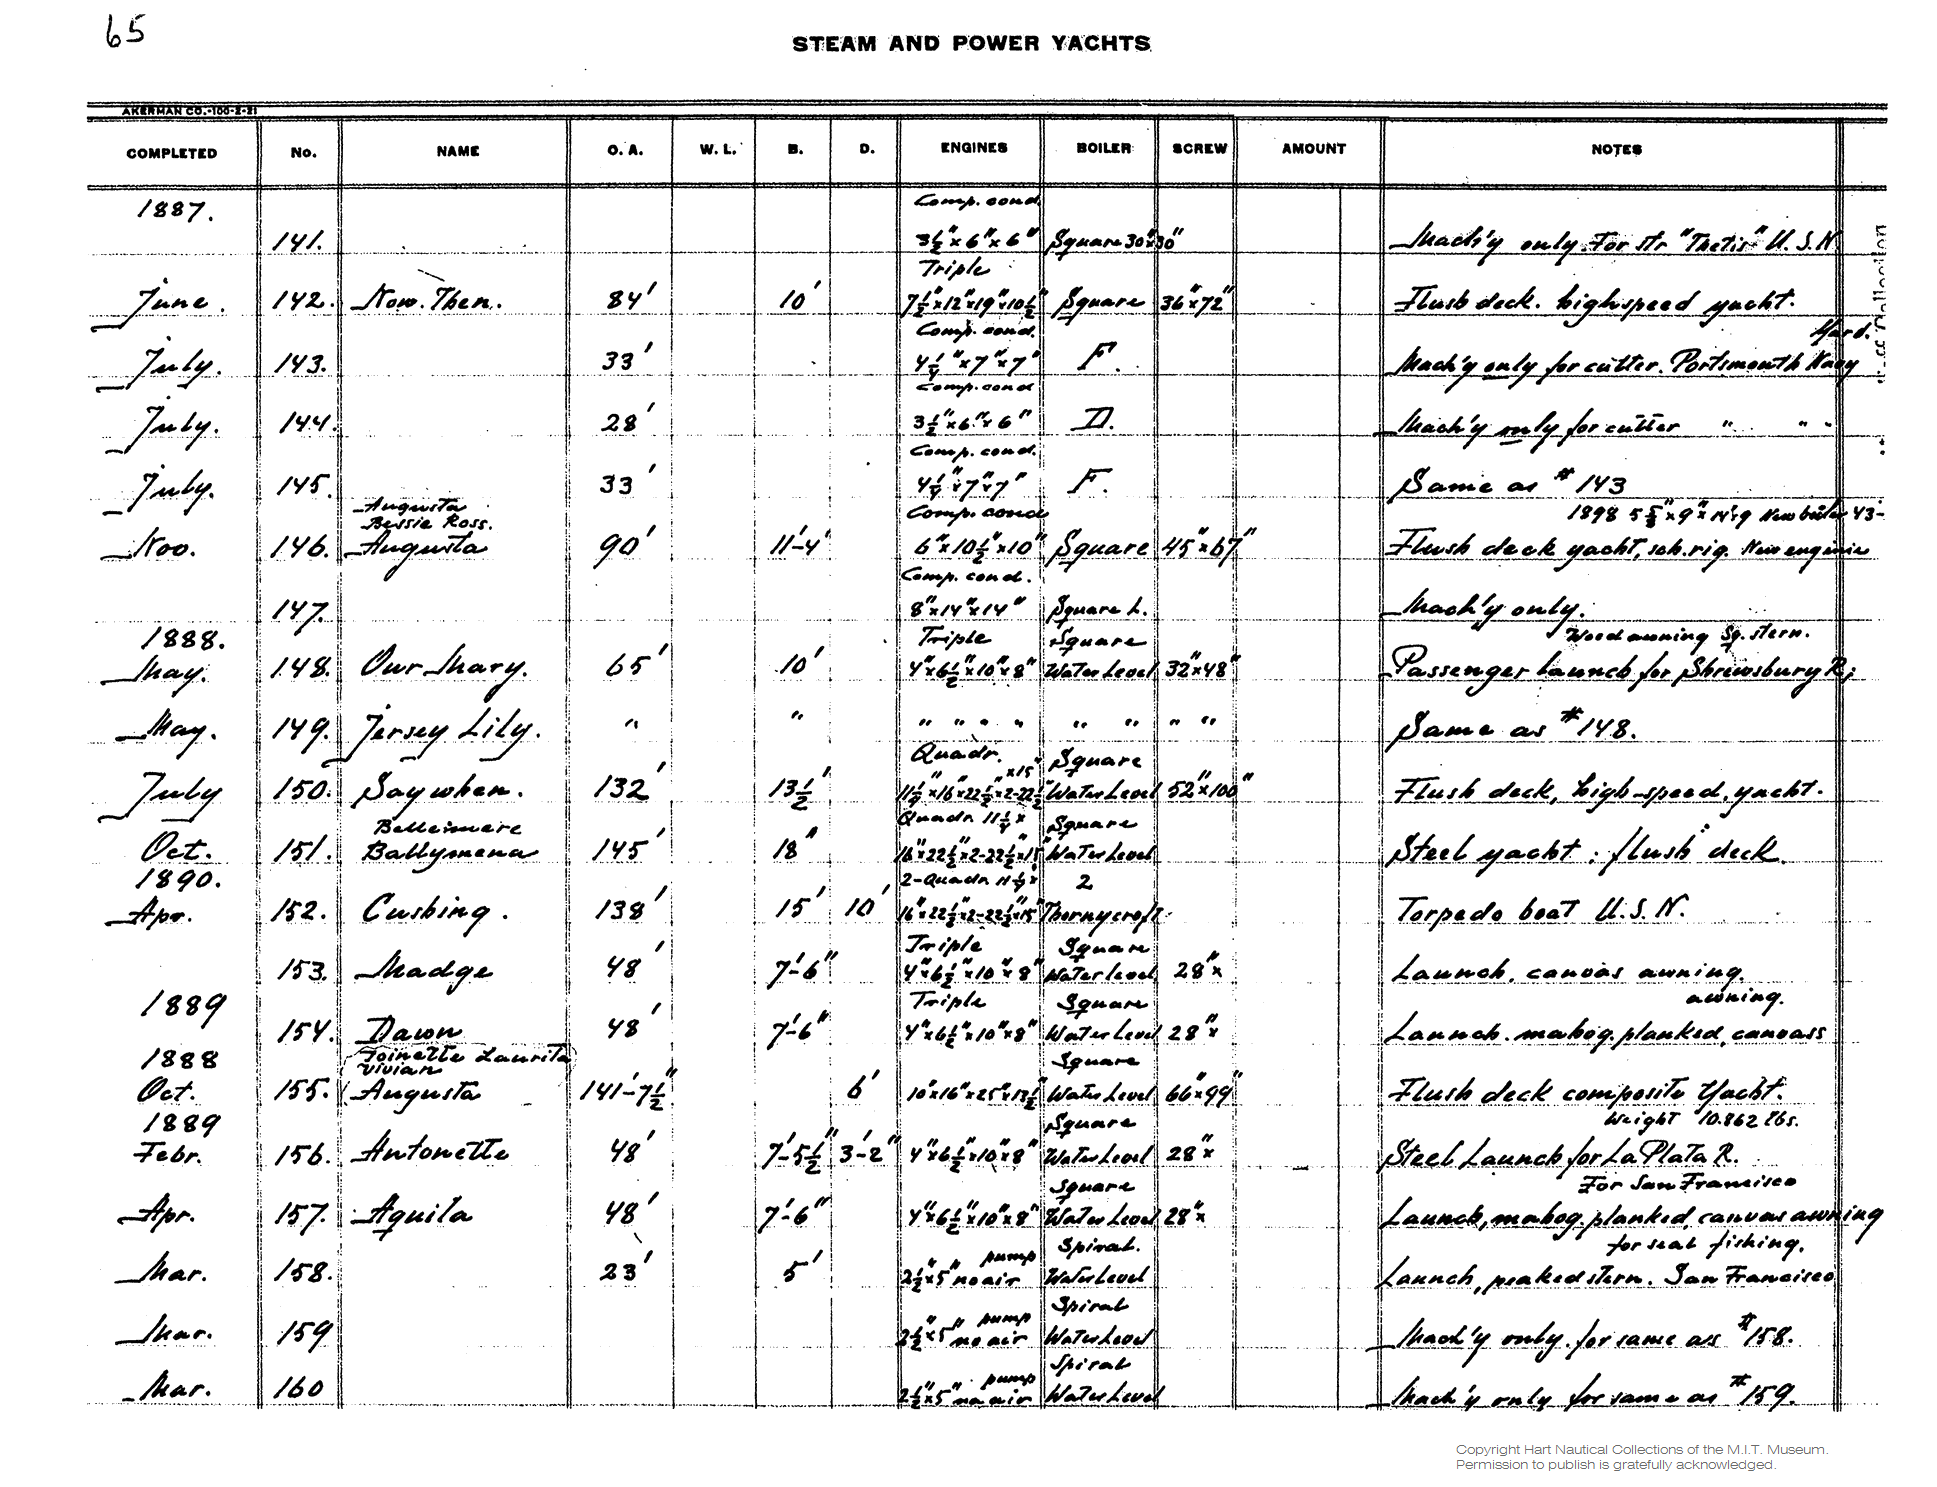 65
STEAM AND POWER YACHTS
AKERMAN CO.-100-2-21
COMPLETED No. NAME O. A. W. L. B. D. ENGINES BOILER SCREW AMOUNT NOTES
1887. Comp. cond.
141. 3½" x 6" x 6" Square 30"x30" Mach'y only. For str "Thetis" U. S. N.
Triple
June. 142. Now. Then. 84' 10' 7½"x12"x19"x10½" Square 36"x72" Flush deck. highspeed yacht.
Comp. cond. Yard.
July. 143. 33' 4¼"x7"x7" F. Mach'y only for cutter. Portsmouth Navy
Comp. cond
July. 144. 28' 3½"x6"x6" D. Mach'y only for cutter " " "
Comp. cond.
July. 145. 33' 4¼"x7"x7" F. Same as #143
Augusta Comp. cond 1898 5⅝"x9"x14"x9 New boiler 43-
Bessie Ross.
Nov. 146. Augusta 90' 11'-4" 6"x10½"x10" Square 45"x67" Flush deck yacht, sch. rig. New engine
Comp. cond.
147. 8"x14"x14" Square L. Mach'y only.
1888. Triple Square Wood awning Sq. stern.
May. 148. Our Mary. 65' 10' 4"x6½"x10"x8" Water Level 32"x48" Passenger launch for Shrewsbury R;
May. 149. Jersey Lily. " " " " " " " " " " Same as #148.
Quadr. x15" Square
July 150. Say when. 132' 13½' 11¼"x16"x22½"x2-22½" Water Level 52"x100" Flush deck, high-speed, yacht.
Bellemere Quadr. 11¼ x Square
Oct. 151. Ballymena 145' 18" 16"x22½"x2-22½"x15" Water Level Steel yacht; flush deck.
1890. 2-Quadr. 11¼"x 2
Apr. 152. Cushing. 138' 15' 10' 16"x22½"x2-22½"x15" Thornycroft. Torpedo boat U. S. N.
Triple Square
153. Madge 48' 7'-6" 4"x6½"x10"x8" Water Level 28"x Launch. canvas awning.
1889 Triple Square awning.
154. Dawn 48' 7'-6" 4"x6½"x10"x8" Water Level 28"x Launch. mahog. planked, canvass
1888 Toinette Laurita Square
Vivian
Oct. 155. Augusta 141'-7½" 6' 10"x16"x25"x13½" Water Level 66"x99" Flush deck composite Yacht.
1889 Square Weight 10.862 lbs.
Febr. 156. Antonette 48' 7'-5½" 3'-2" 4"x6½"x10"x8" Water Level 28"x Steel Launch for La Plata R.
Square For San Francisco
Apr. 157. Aquila 48' 7'-6" 4"x6½"x10"x8" Water Level 28"x Launch, mahog. planked, canvas awning
pump Spiral. for seal fishing.
Mar. 158. 23' 5' 2½"x5" no air Water Level Launch, peaked stern. San Francisco
pump Spiral
Mar. 159 2½"x5" no air Water Level Mach'y only. for same as #158.
pump Spiral
Mar. 160 2½"x5" no air Water Level Mach'y only for same as #159.
Copyright Hart Nautical Collections of the M.I.T. Museum.
Permission to publish is gratefully acknowledged.